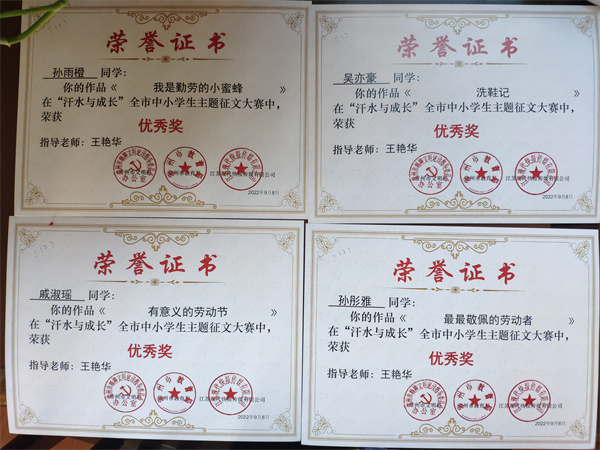 荣誉证书
孙雨橙 同学:
你的作品《 我是勤劳的小蜜蜂 》
在“汗水与成长”全市中小学生主题征文大赛中,
荣获
优秀奖
指导老师: 王艳华
2022年9月8日
荣誉证书
吴亦豪 同学:
你的作品《 洗鞋记 》
在“汗水与成长”全市中小学生主题征文大赛中,
荣获
优秀奖
指导老师: 王艳华
2022年9月8日
荣誉证书
戚淑瑶 同学:
你的作品《 有意义的劳动节 》
在“汗水与成长”全市中小学生主题征文大赛中,
荣获
优秀奖
指导老师: 王艳华
2022年9月8日
荣誉证书
孙彤雅 同学:
你的作品《 最最敬佩的劳动者 》
在“汗水与成长”全市中小学生主题征文大赛中,
荣获
优秀奖
指导老师: 王艳华
2022年9月8日